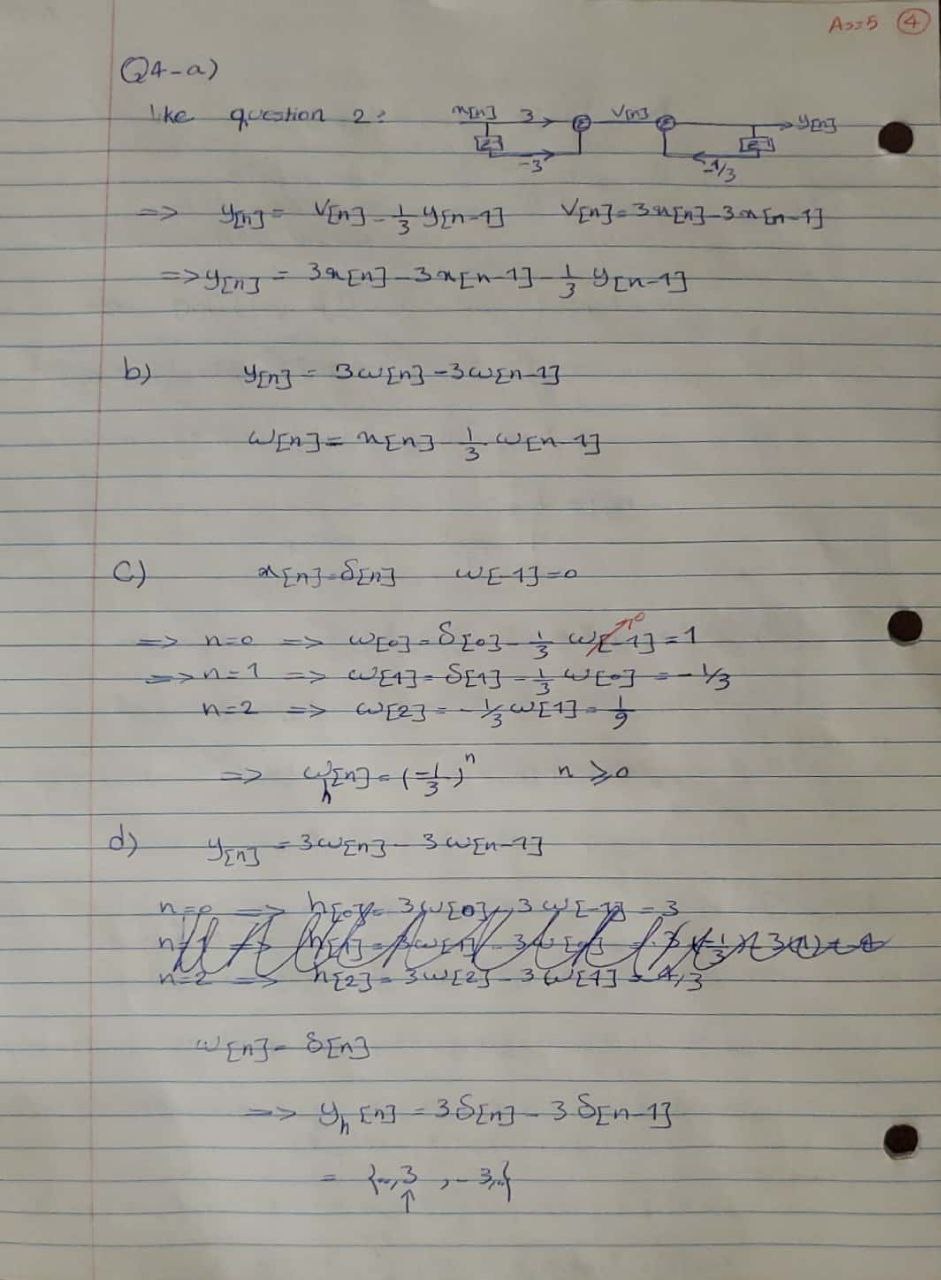 Ass5 ④
Q4-a)
like question 2: x[n] 3 Σ V[n] Σ y[n]
z⁻¹ z⁻¹
-3 -1/3
=> y[n] = V[n] - 1/3 y[n-1] V[n] = 3x[n] - 3x[n-1]
=> y[n] = 3x[n] - 3x[n-1] - 1/3 y[n-1]
b) y[n] = 3ω[n] - 3ω[n-1]
ω[n] = x[n] - 1/3 ω[n-1]
c) x[n] = δ[n] ω[-1] = 0
=> n=0 => ω[0] = δ[0] - 1/3 ω[-1] = 1
0
=> n=1 => ω[1] = δ[1] - 1/3 ω[0] = -1/3
n=2 => ω[2] = -1/3 ω[1] = 1/9
=> ωh[n] = (-1/3)ⁿ n ⩾ 0
d) y[n] = 3ω[n] - 3ω[n-1]
n=0 => h[0] = 3ω[0] - 3ω[-1] = 3
n=2 => h[2] = 3ω[2] - 3ω[1] = 4/3
ω[n] = δ[n]
=> yh[n] = 3δ[n] - 3δ[n-1]
= {..,3, -3,..}
↑